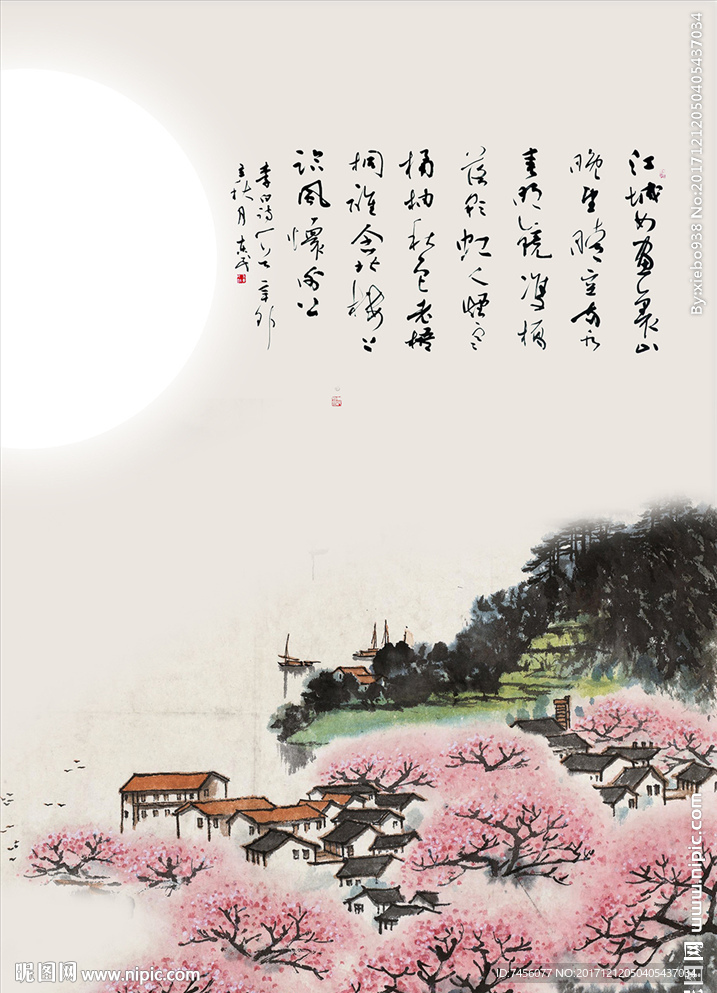 江城如畫裏山
晚望晴空两水
夾明鏡雙橋
落彩虹人煙寒
橘柚秋色老梧
桐誰念北樓上
臨風懷謝公
李白詩一首辛卯
秋月
By:xiebo938 No:20171212050405437034
昵图网 www.nipic.com
昵图网 www.nipic.com
ID:7456077 NO:20171212050405437034